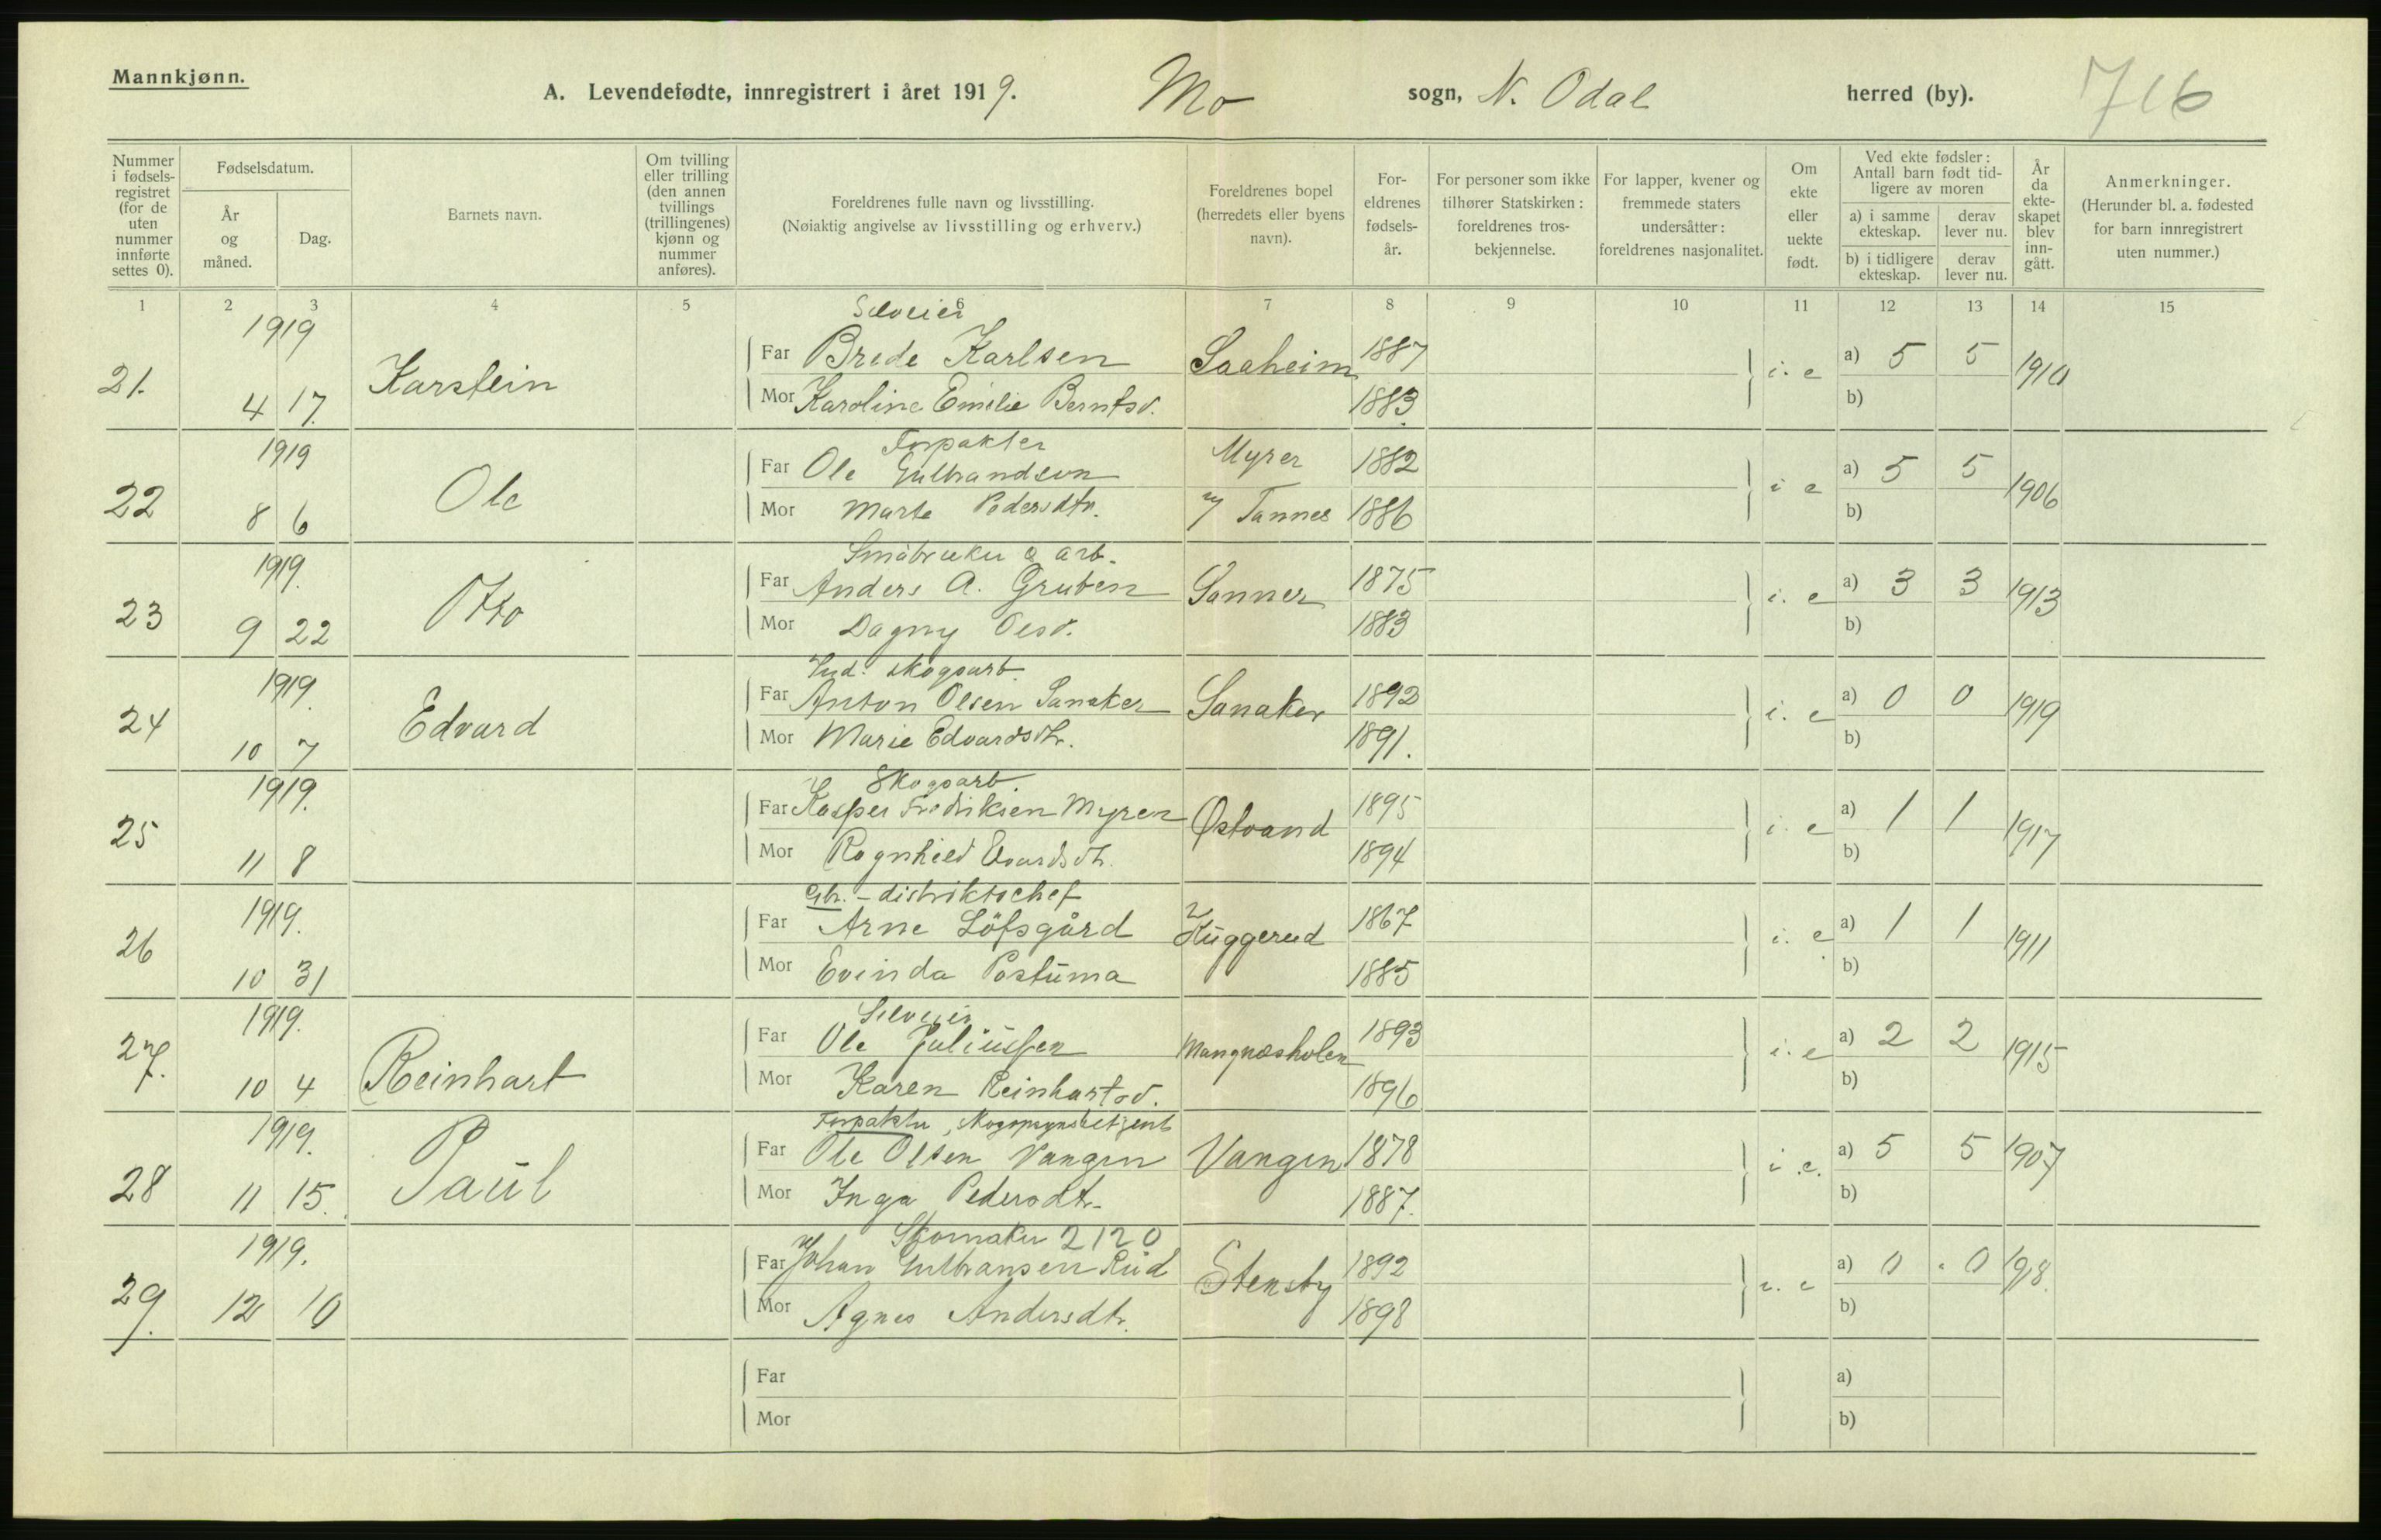 Mannkjønn.
A. Levendefødte, innregistrert i året 1919. Mo sogn, N. Odal herred (by). 716
Nummer i fødsels-registret (for de uten nummer innførte settes 0).
Fødselsdatum.
År og måned.
Dag.
Barnets navn.
Om tvilling eller trilling (den annen tvillings (trillingenes) kjønn og nummer anføres).
Foreldrenes fulle navn og livsstilling.
(Nøiaktig angivelse av livsstilling og erhverv.)
Foreldrenes bopel (herredets eller byens navn).
For-eldrenes fødsels-år.
For personer som ikke tilhører Statskirken: foreldrenes tros-bekjennelse.
For lapper, kvener og fremmede staters undersåtter: foreldrenes nasjonalitet.
Om ekte eller uekte født.
Ved ekte fødsler: Antall barn født tid-ligere av moren
a) i samme ekteskap.
derav lever nu.
b) i tidligere ekteskap.
derav lever nu.
År da ekte-skapet blev inn-gått.
Anmerkninger.
(Herunder bl. a. fødested for barn innregistrert uten nummer.)
1 2 3 4 5 6 7 8 9 10 11 12 13 14 15
1919 Selveier
21. Karstein Far Brede Karlsen Saaheim 1887 i. e a) 5 5 1910
4 17. Mor Karoline Emilie Berntsd. 1883. b)
1919 Forpakter
22 Ole Far Ole Gulbrandsen Myrer 1882 i e a) 5 5 1906
8 6 Mor Marte Pedersdtr. Tannes 1886 b)
1919. Småbruker o arb.
23 Otto Far Anders A. Gruben Sanner 1875 i. e a) 3 3 1913
9 22 Mor Dagny Olsd. 1883 b)
1919. skogsarb.
24 Edvard Far Anton Olsen Sanaker Sanaker 1892 i. e a) 0 0 1919
10 7 Mor Marie Edvardsdtr. 1891. b)
1919. Skogsarb.
25 Far Kasper Fredriksen Myren Østvand 1895 i. e a) 1 1 1917
11 8 Mor Ragnhild 1894 b)
1919. - distriktschef
26 Far Arne Löfsgård Kuggerud 1867 i. e a) 1 1 1911
10 31 Mor Evinda Postuma 1885 b)
1919. Selveier
27. Reinhart Far Ole Juliussen Mangnæsholen 1893 i. e a) 2 2 1915
10 4 Mor Karen Reinhartsd. 1896 b)
1919. Forpakter, skogopsynsbetjent
28 Paul Far Ole Olsen Vangen Vangen 1878 i. e. a) 5 5 1907
11 15. Mor Inga Pedersdtr. 1887. b)
1919. Skomaker 2120
29. Far Johan Gulbransen Rud Stensby 1892 i. e a) 0 0 1918.
12 10 Mor Agnes Andersdtr. 1898 b)
Far a)
Mor b)